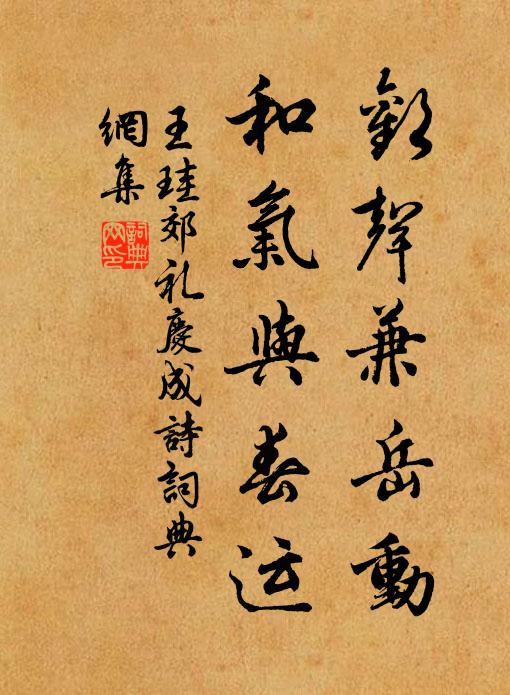 歡聲兼岳動
和氣與春运
王珪郊礼慶成詩詞典
網集
詞典網印